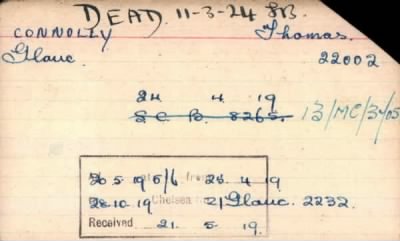 DEAD. 11-3-24 SB.
CONNOLLY Thomas.
Glouc. 22002
24 4 19
S C B. 8265. 13/MC/3405
20 5 19 5/6 from 24 4 19
28.10.19 Chelsea 21 Glouc. 2232.
Received 21. 5 19.